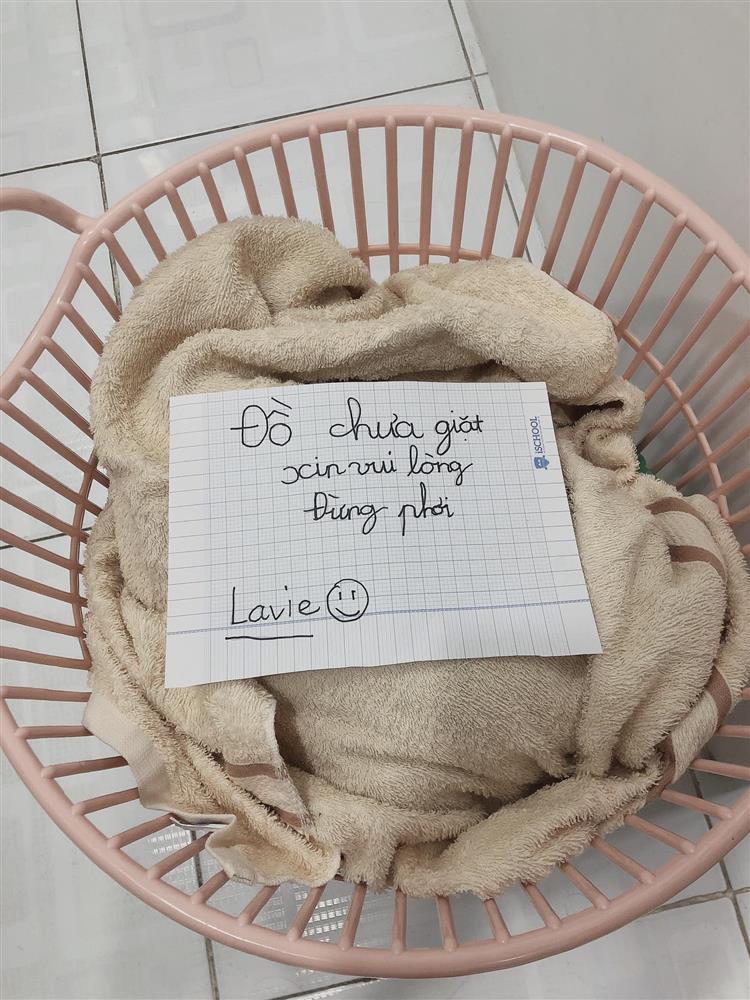 Đồ chưa giặt
xin vui lòng
Đừng phơi
Lavie
iSCHOOL